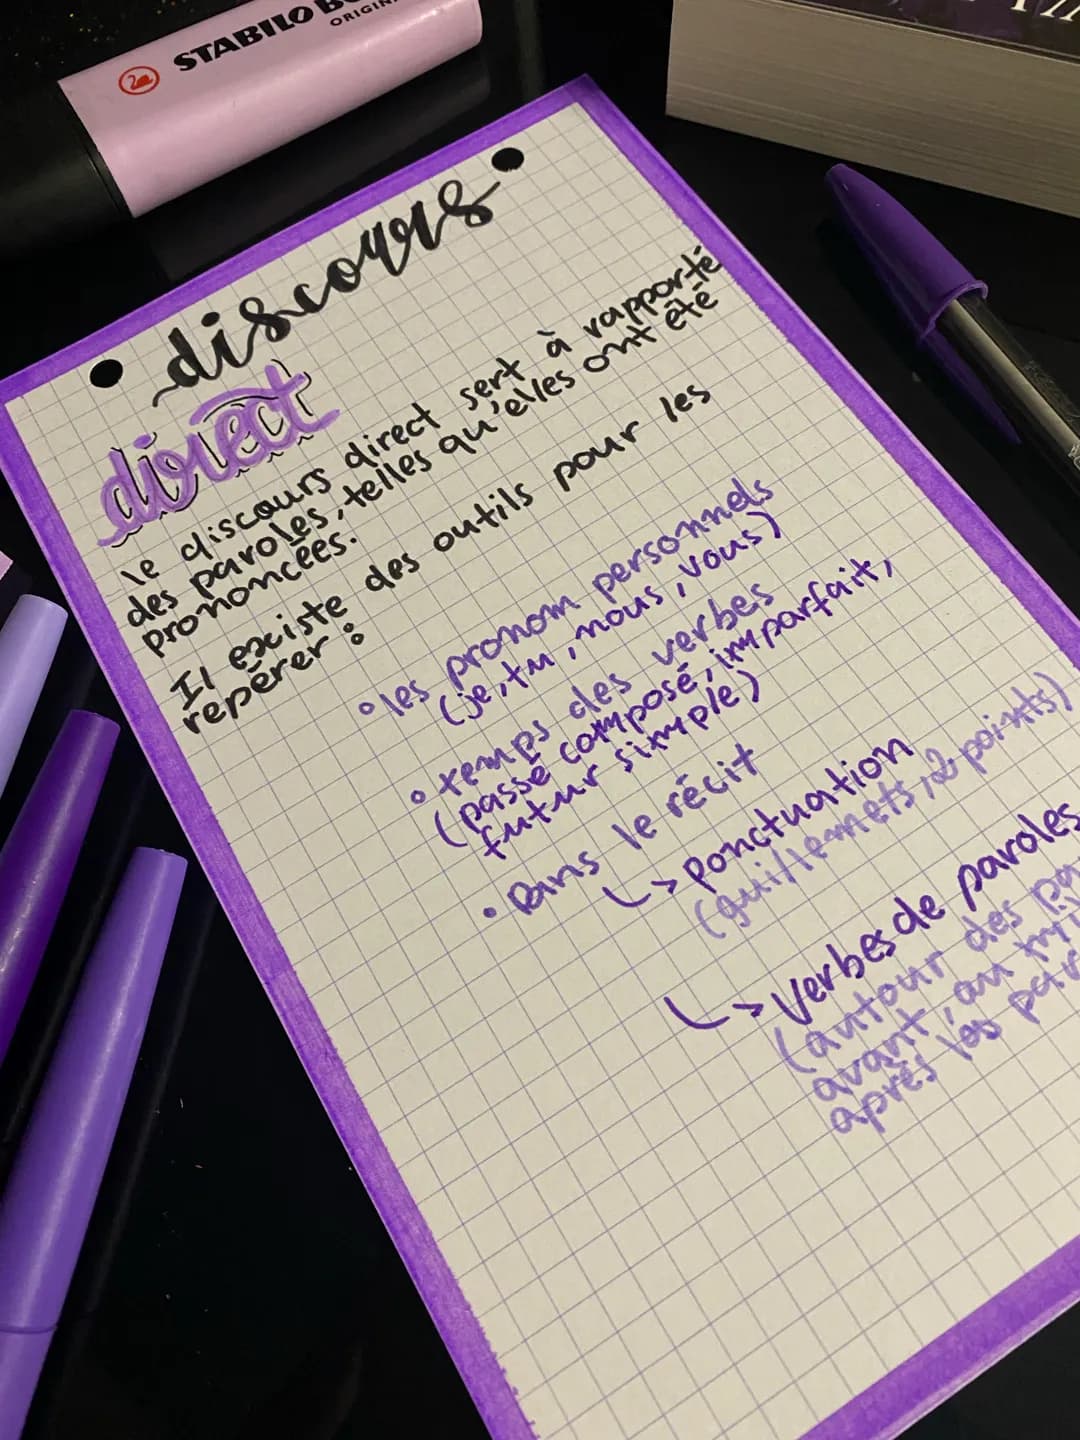 STABILO BO
ORIGIN
discours
direct
le discours direct sert à rapporté
des paroles, telles qu'elles ont été
prononcées.
Il existe des outils pour les
repérer :
• les pronom personnels
(je, tu, nous, vous)
• temps des verbes
(passé composé, imparfait,
futur simple)
• Dans le récit
↳> Ponctuation
(guillemets, 2 points)
↳> Verbes de paroles
(autour des pa
avant, au mi
après les par